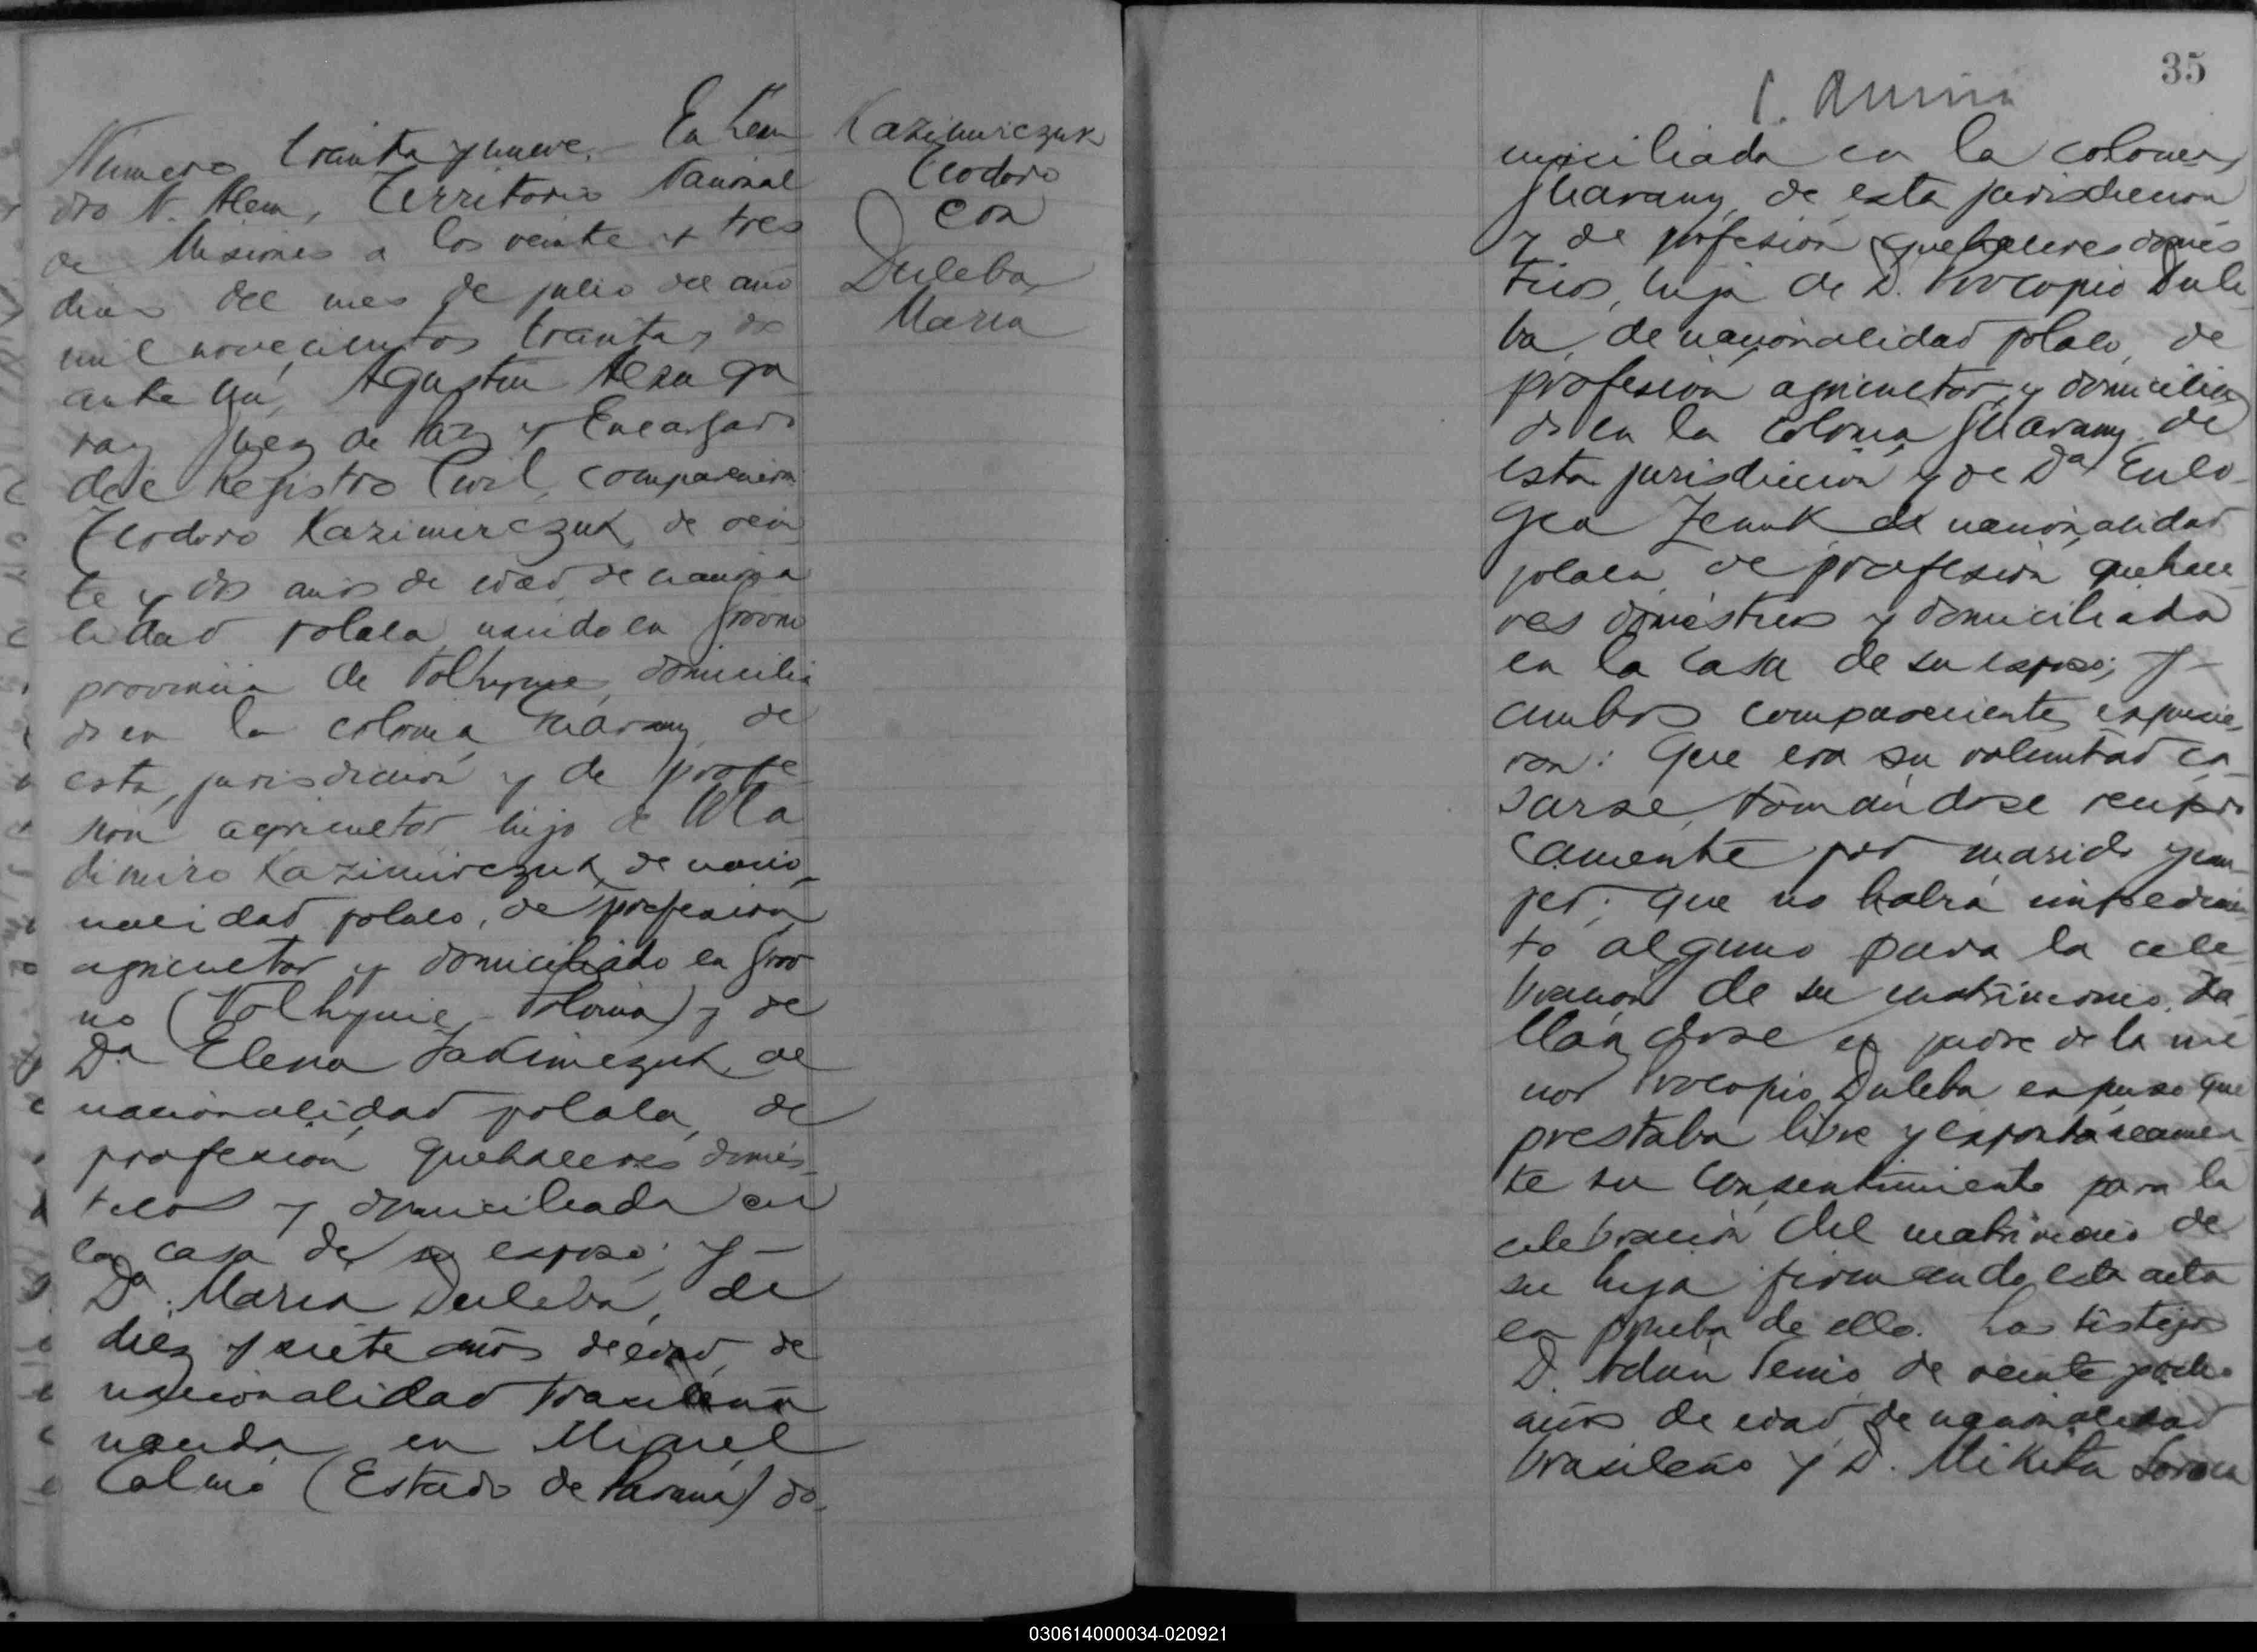 Número treinta y nueve. En Lean
dro N. Alem, Territorio Nacional
de Misiones a los veinte y tres
dias del mes de julio del año
mil novecientos treinta y dos
ante mí, Agustín
Juez de Paz y Encargado
del Registro Civil, comparecieron
Teodoro Kazimirczuk, de vein
te y dos años de edad, de naciona
lidad polaca, nacido en
provincia de Volhynie, domicilia
do en la colonia Guarany, de
esta jurisdicción y de profe
sión agricultor, hijo de Wla
dimiro Kazimirczuk, de nacio
nalidad polaco, de profesión
agricultor y domiciliado en
no (Volhynie - Polonia) y de
Da Elena Jakimczuk, de
nacionalidad polaca, de
profesión quehaceres domés
ticos y domiciliada en
la casa de su esposo; y -
Da. Maria Duleba, de
diez y siete años de edad, de
nacionalidad brasileña
nacida en Miguel
Calmó (Estado de Paraná) do-
Kazimirczuk
Teodoro
con
Duleba
Maria
35
miciliada en la colonia
Guarany, de esta jurisdicción
y de profesión quehaceres domés
ticos, hija de D. Procopio Dule
ba, de nacionalidad polaco, de
profesión agricultor y domicilia
do en la colonia Guarany de
esta jurisdicción y de Da Eulo
gea Zenuk de nacionalidad
polaca, de profesión quehace
res domésticos y domiciliada
en la casa de su esposo; y -
ambos comparecientes expusie
ron: Que era su voluntad ca
sarse, tomándose recípro
camente por marido y mu
jer; que no había impedimen
to alguno para la cele
bración de su matrimonio. Ha
llándose el padre de la me
nor Procopio Duleba expuso que
prestaba libre y espontáneamen
te su consentimiento para la
celebración del matrimonio de
su hija firmando esta acta
en prueba de ello. Los testigos
D. Adán de veinte y ocho
años de edad, de nacionalidad
brasileño y D. Mikita
030614000034-020921